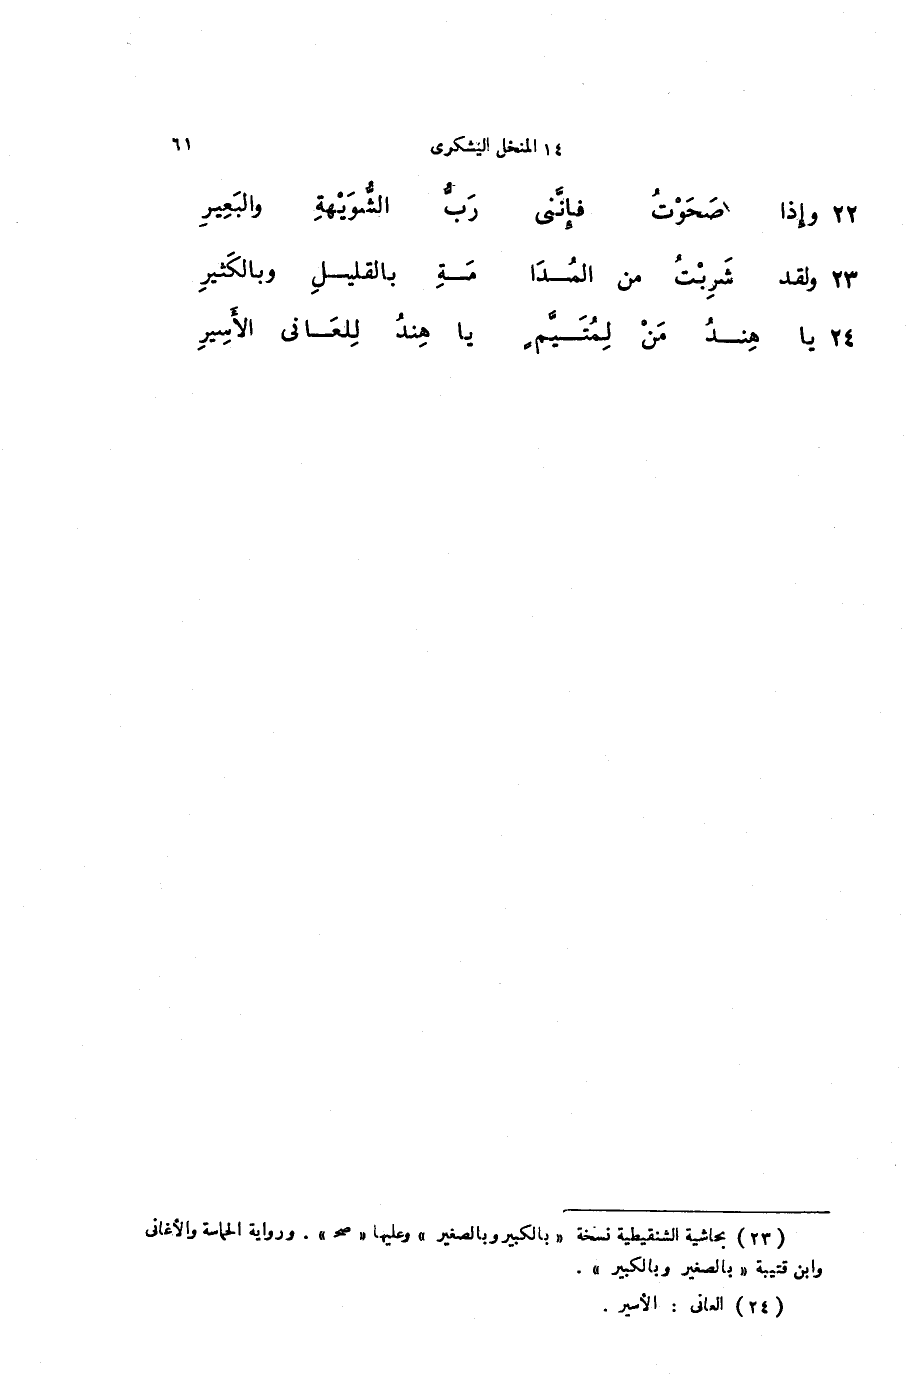 ١٤ المنخل اليشكرى ٦١
٢٢ وإذا صَحَوْتُ فإِنَّنى رَبُّ الشُّوَيْهةِ والبَعِيرِ
٢٣ ولقد شَرِبْتُ من المُـدَا مَـةِ بالقليـلِ وبالكَثيرِ
٢٤ يا هِنـدُ مَنْ لِمُتَـيَّمٍ يا هِندُ لِلعَـانى الأَسِيرِ
(٢٣) بحاشية الشنقيطية نسخة « بالكبير وبالصغير » وعليها « صح » . ورواية الحماسة والأغانى
وابن قتيبة « بالصغير وبالكبير » .
(٢٤) العانى : الأسير .